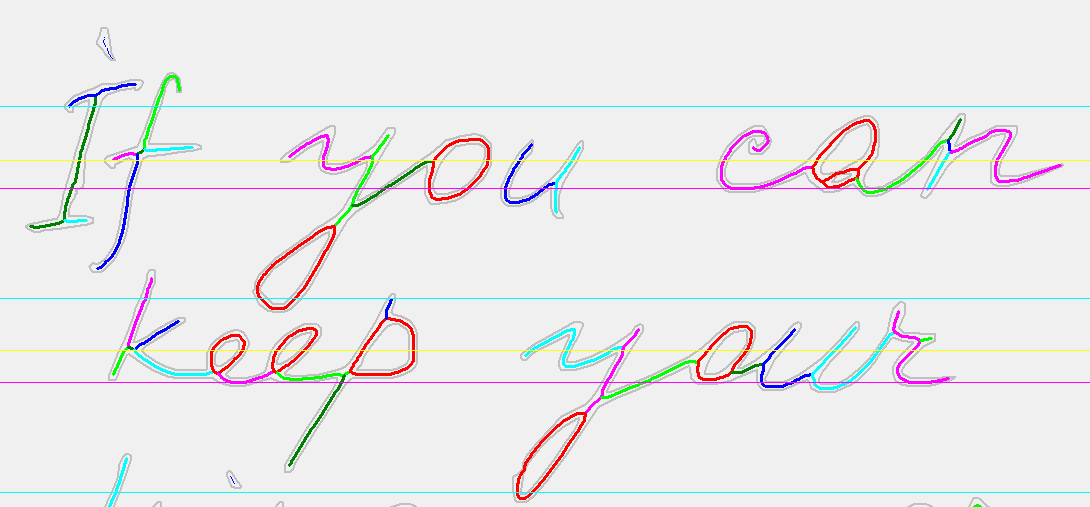 If you can
keep your